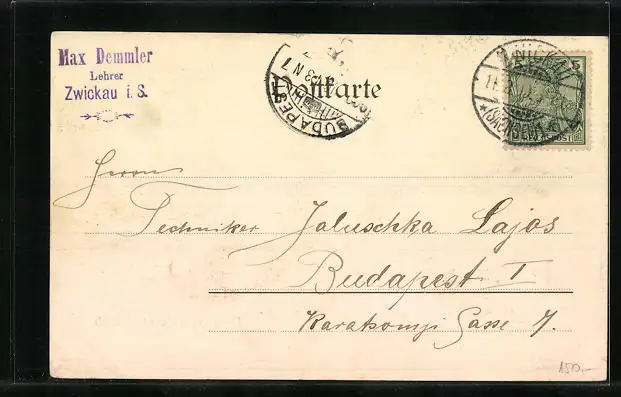 Max Demmler
Lehrer
Zwickau i. S.
Postkarte
BUDAPEST
5
Herrn
Techniker Jaluschka Lajos
Budapest I
Gasse 7.
150.-